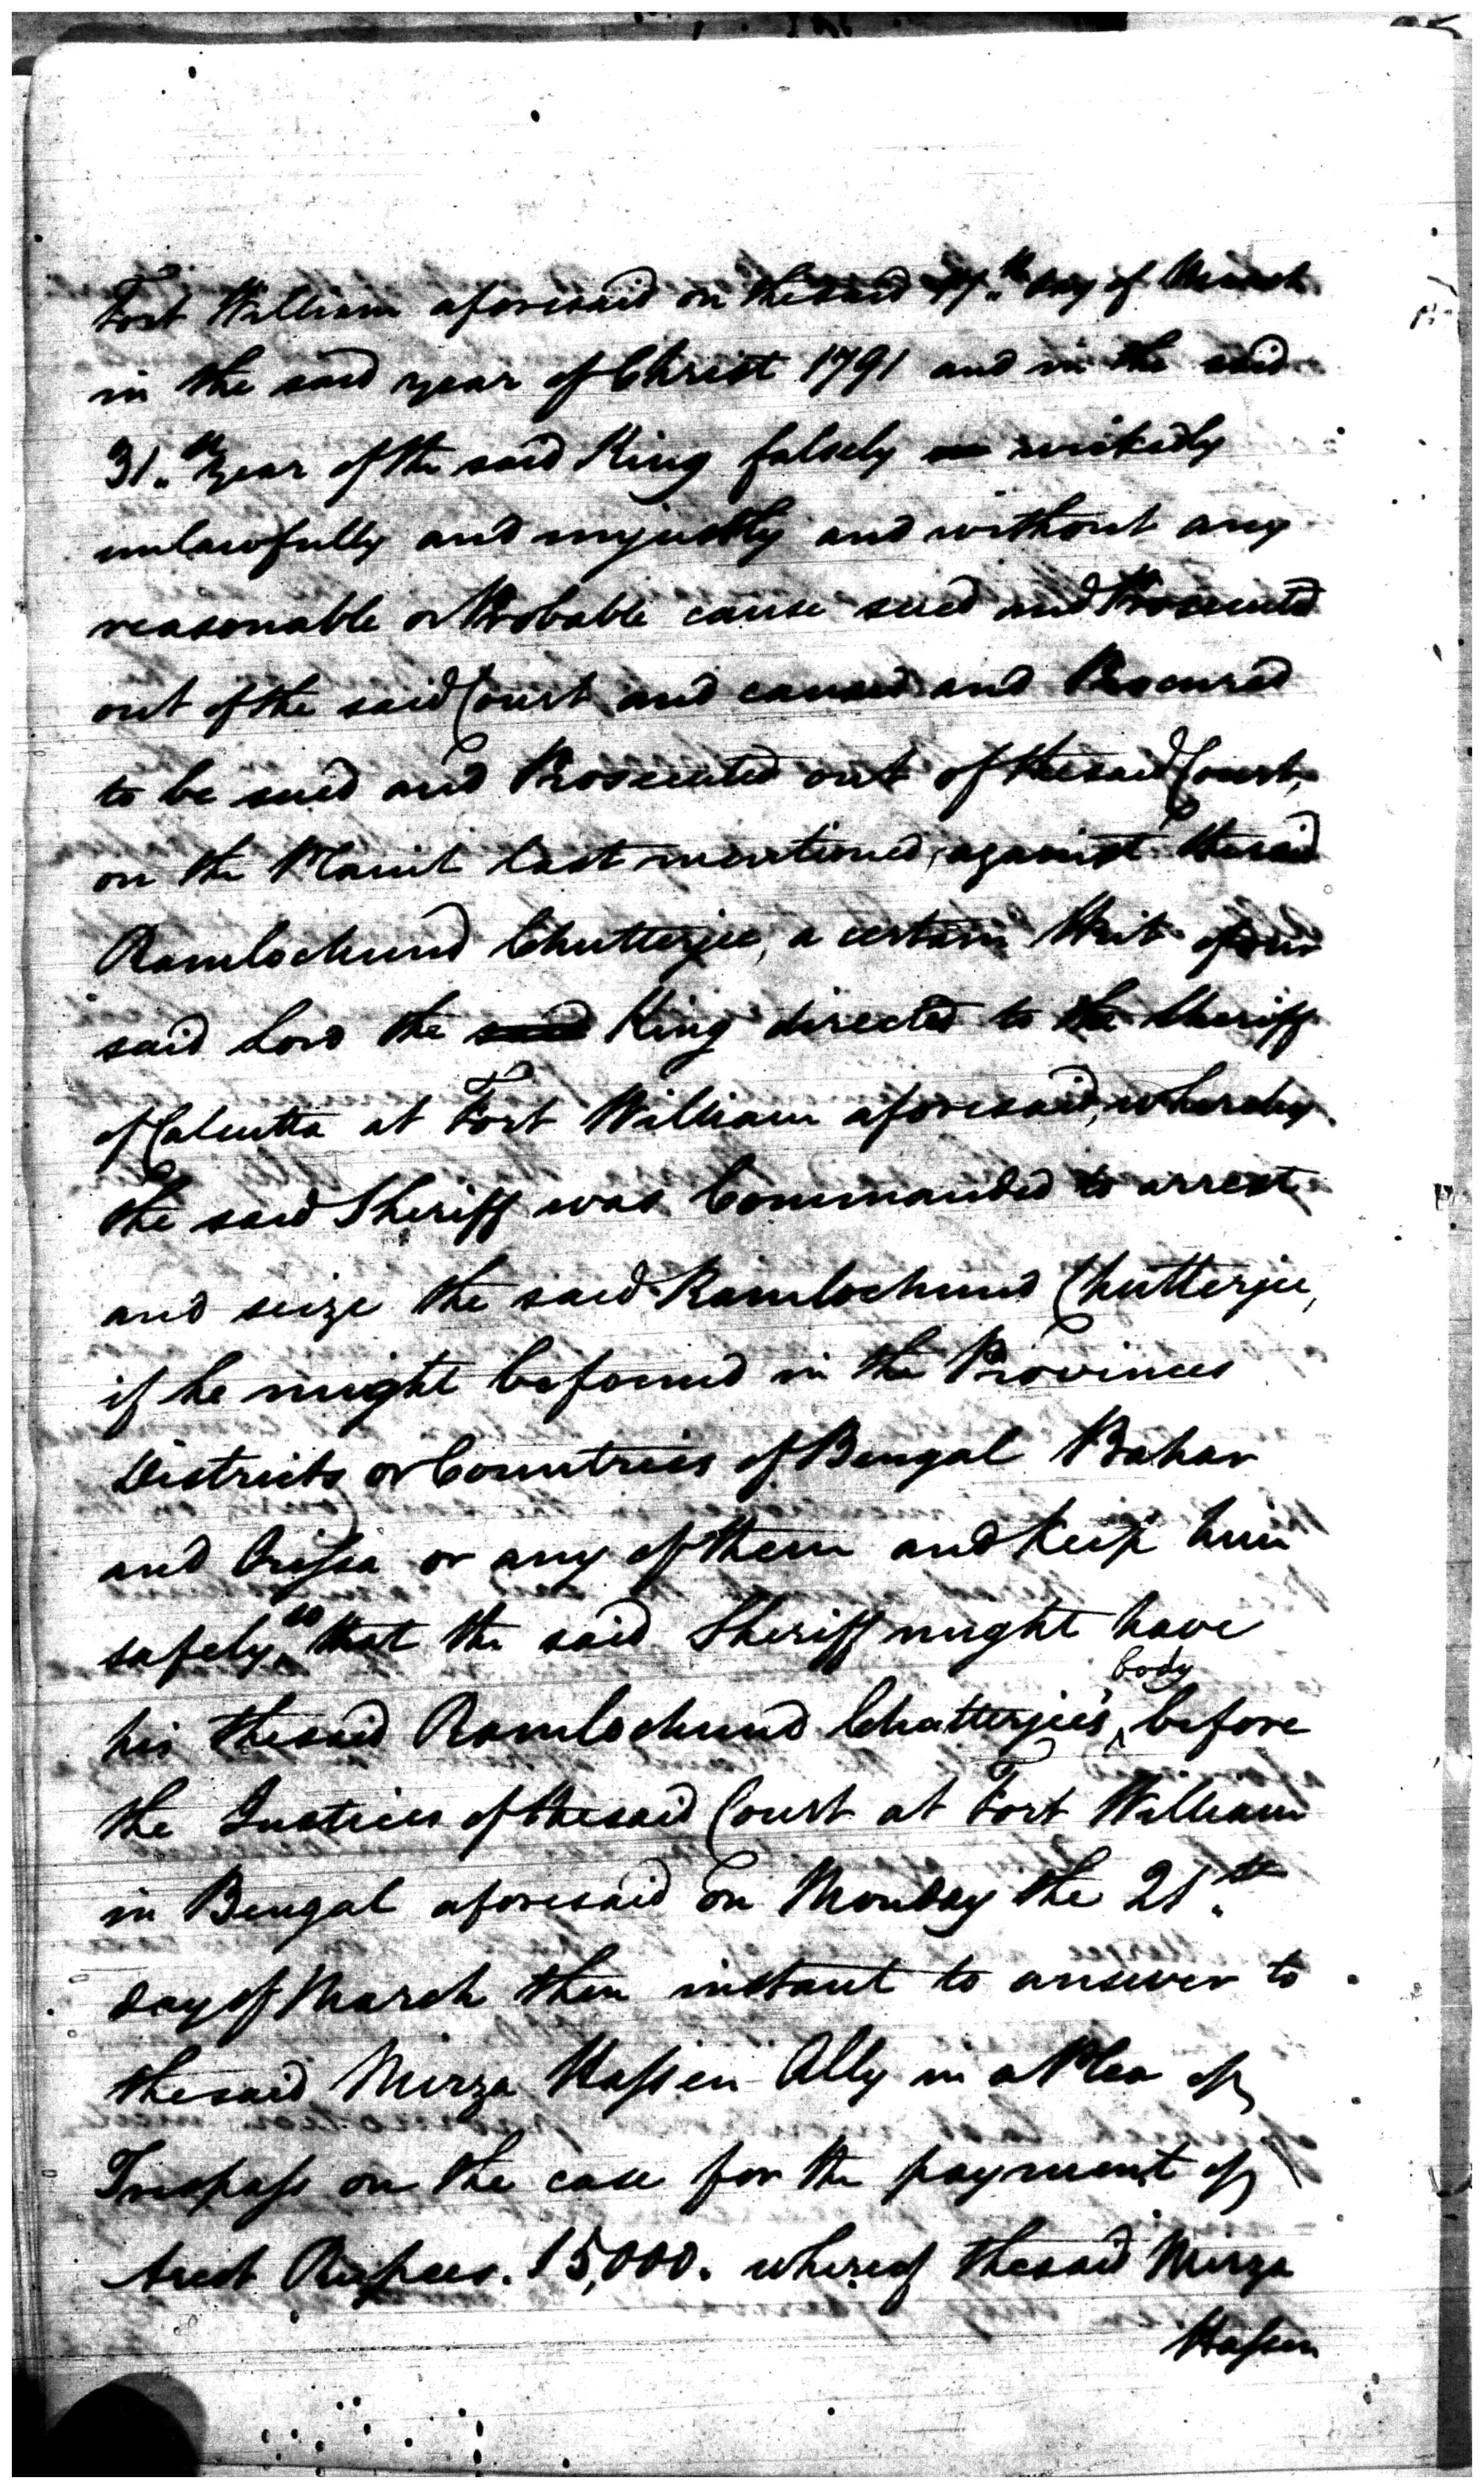 Fort William aforesaid on the said 17.th day of March
in the said year of Christ 1791 and in the said
31.st year of the said King falsely wickedly
unlawfully and unjustly and without any
reasonable or Probable cause sued and Prosecuted
out of the said Court and caused and Procured
to be sued and Prosecuted out of the said Court,
on the Plaint last mentioned, against the said
Ramlochund Chutterjee, a certain Writ of our
said Lord the said King directed to the Sheriff
of Calcutta at Fort William aforesaid, whereby
the said Sheriff was Commanded to arrest
and seize the said Ramlochund Chutterjee,
if he might be found in the Provinces
Districts or Countries of Bengal Bahar
and Orissa or any of them and keep him
safely so that the said Sheriff might have
his the said Ramlochund Chatterjee's body before
the Justices of the said Court at Fort William
in Bengal aforesaid on Monday the 21.th
day of March then instant to answer to
the said Mirza Hassen Ally in a Plea of
Trespass on the case for the payment of
Arcot Rupees. 15,000. whereof the said Mirza
Hassen